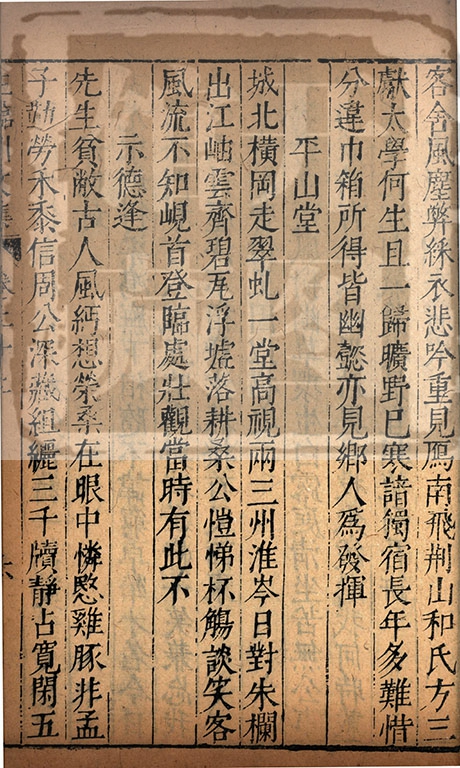 客舍風塵弊綵衣悲吟重見鴈南飛荆山和氏方三
獻太學何生且一歸曠野已寒諳獨宿長年多難惜
分違巾箱所得皆幽懿亦見鄉人爲發揮
平山堂
城北橫岡走翠虬一堂高視兩三州淮岑日對朱欄
出江岫雲齊碧瓦浮墟落耕桑公愷悌杯觴談笑客
風流不知峴首登臨處壯觀當時有此不
示德逢
先生貧敝古人風緬想榮桑在眼中憐愍雞豚非孟
子勤勞禾黍信周公深藏組纚三千牘靜占寬閑五